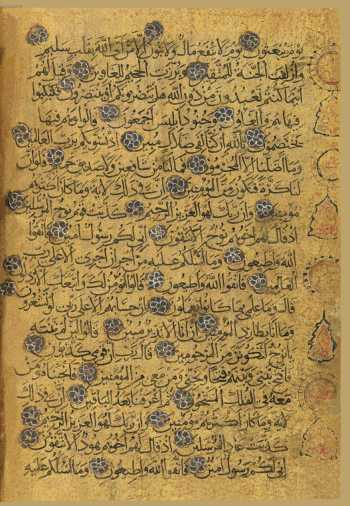 يوم يبعثون يوم لا ينفع مال ولا بنون الا من اتى الله بقلب سليم
وازلفت الجنة للمتقين وبرزت الجحيم للغاوين وقيل لهم
اينما كنتم تعبدون من دون الله هل ينصرونكم او ينتصرون فكبكبوا
فيها هم والغاون وجنود ابليس اجمعون قالوا وهم فيها
يختصمون تالله ان كنا لفي ضلال مبين اذ نسويكم برب العالمين
وما اضلنا الا المجرمون فما لنا من شافعين ولا صديق حميم فلو ان
لنا كرة فنكون من المؤمنين ان في ذلك لاية وما كان اكثرهم
مؤمنين وان ربك لهو العزيز الرحيم كذبت قوم نوح المرسلين
اذ قال لهم اخوهم نوح الا تتقون اني لكم رسول امين فاتقوا
الله واطيعون وما اسلكم عليه من اجر ان اجري الا على رب
العالمين فاتقوا الله واطيعون قالوا انؤمن لك واتبعك الارذلون
قال وما علمي بما كانوا يعملون ان حسابهم الا على ربي لو تشعرون
وما انا بطارد المؤمنين ان انا الا نذير مبين قالوا لئن لم تنته
ينوح لتكونن من المرجومين قال رب ان قومي كذبون
فافتح بيني وبينهم فتحا ونجني ومن معي من المؤمنين فانجيناه ومن
معه في الفلك المشحون ثم اغرقنا بعد الباقين ان في ذلك
لاية وما كان اكثرهم مؤمنين وان ربك لهو العزيز الرحيم
كذبت عاد المرسلين اذ قال لهم اخوهم هود الا تتقون
اني لكم رسول امين فاتقوا الله واطيعون وما اسلكم عليه